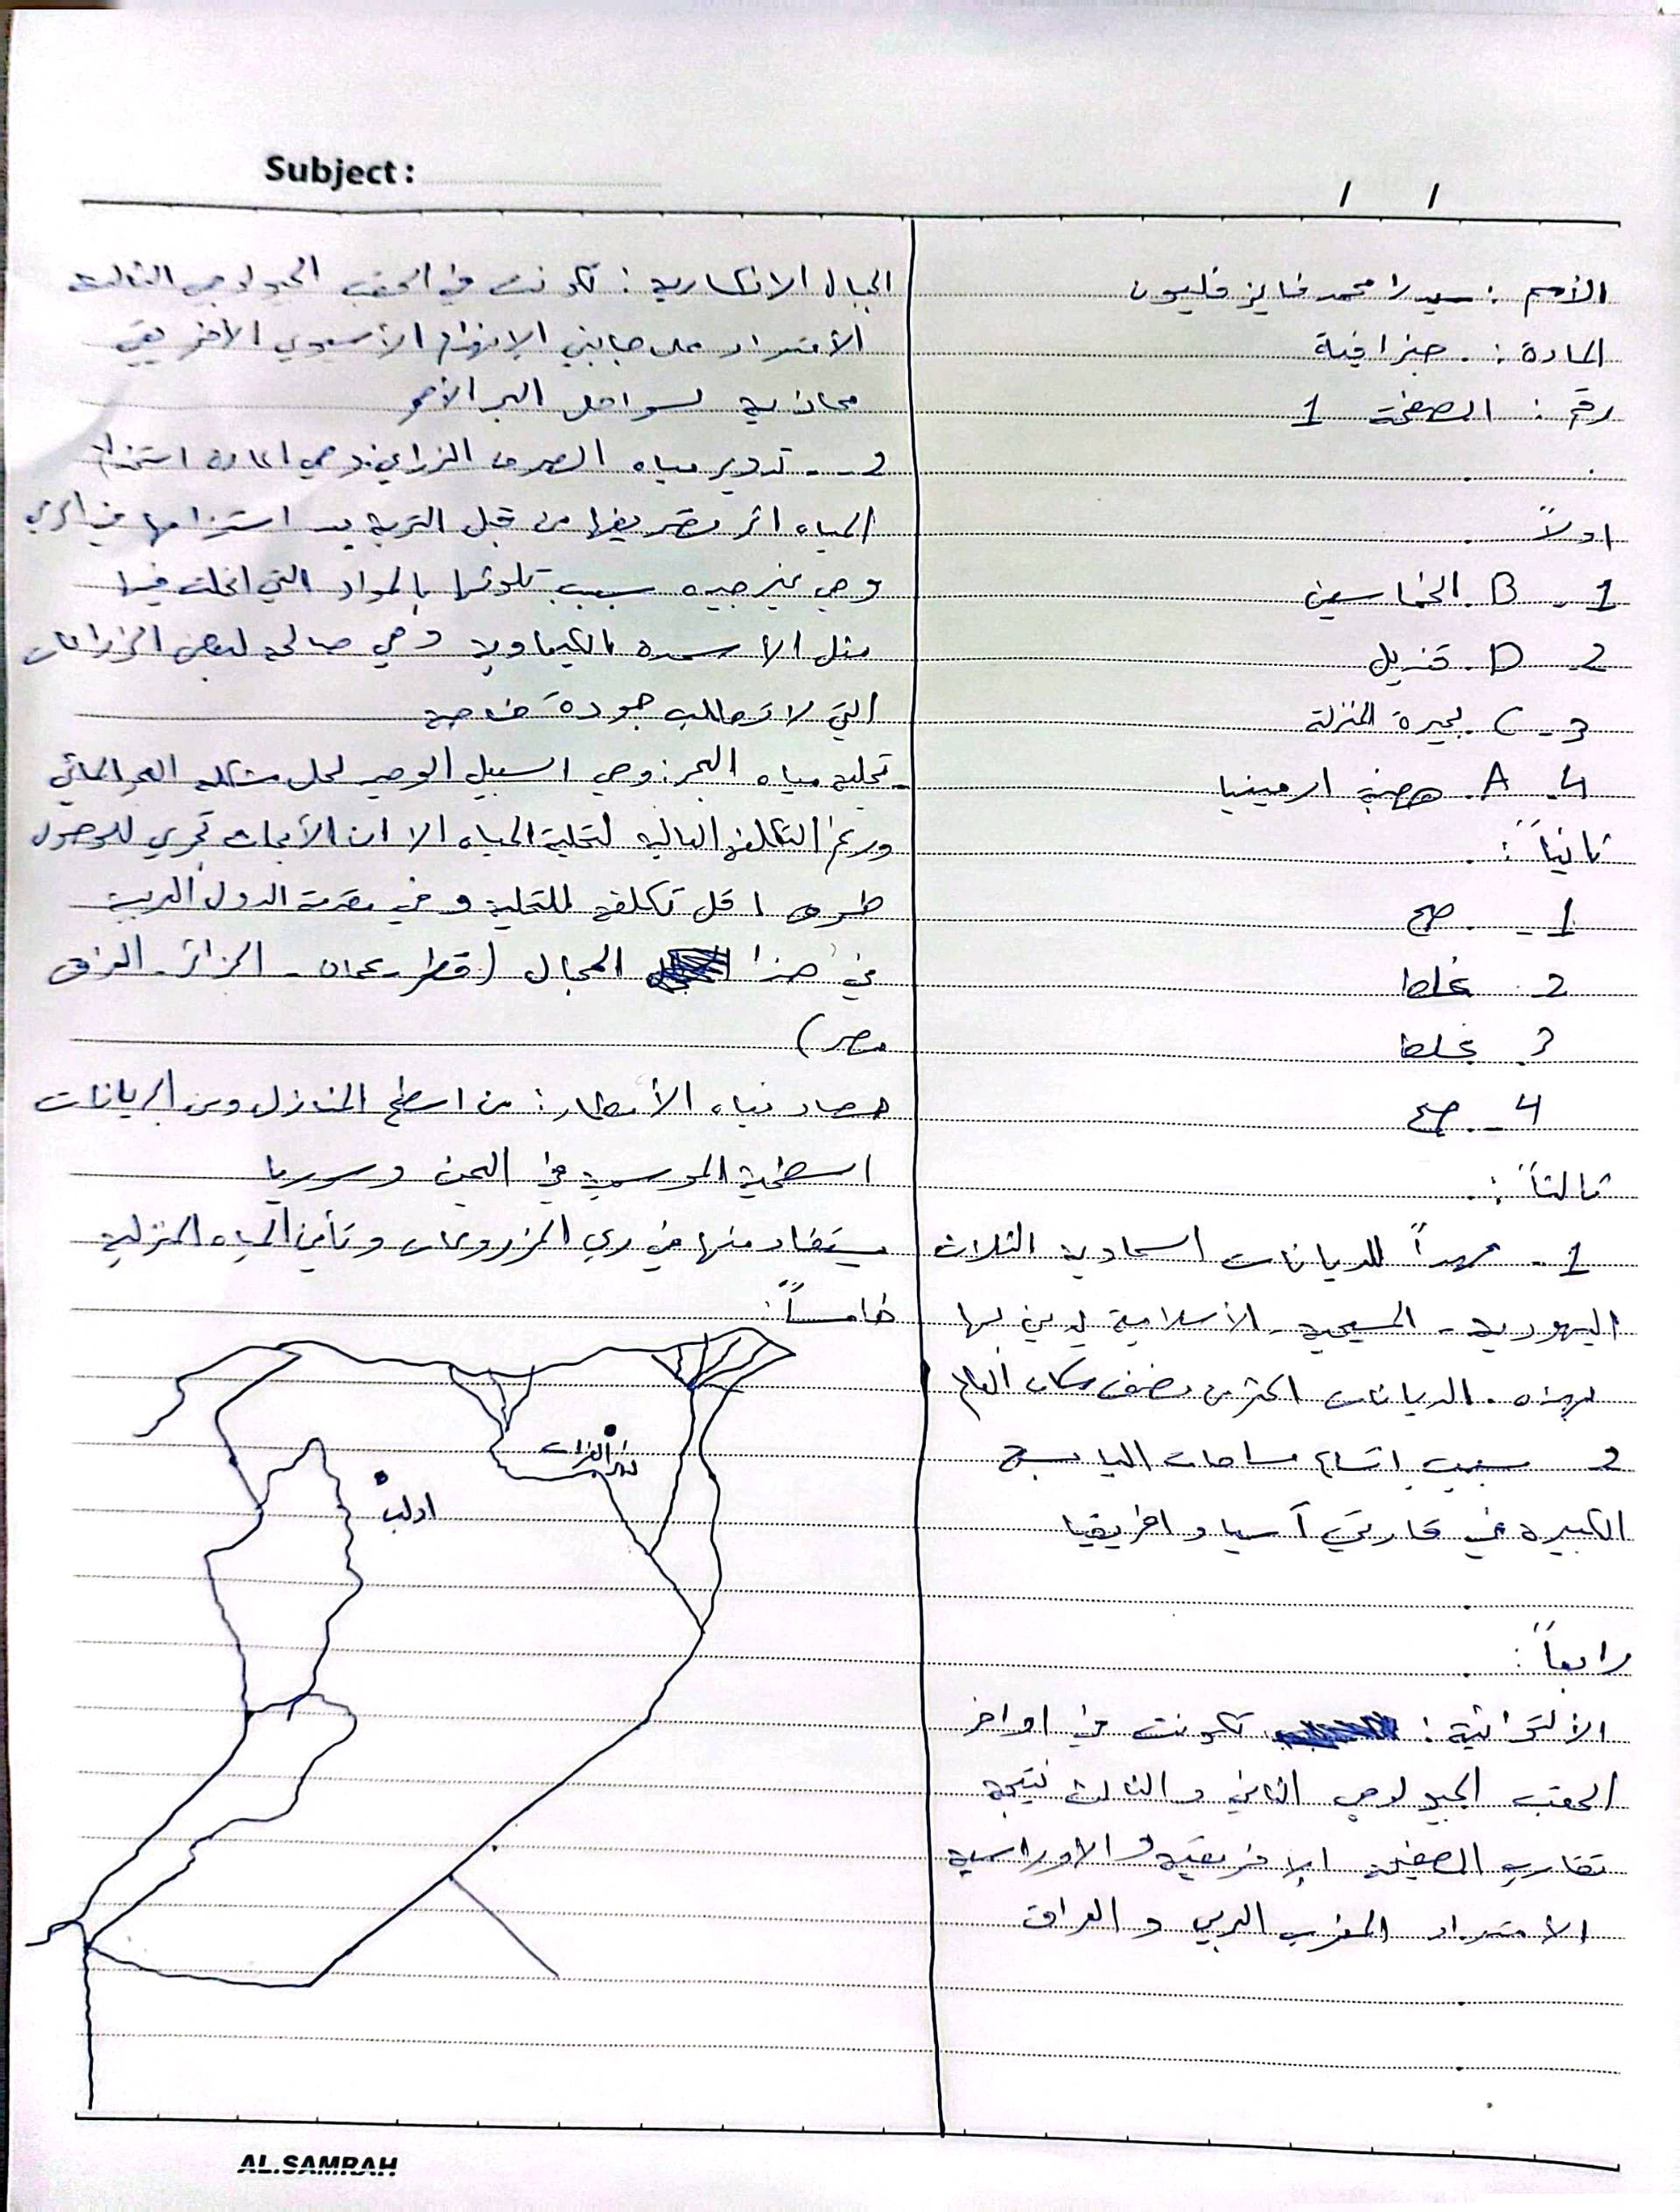 Subject:
/ /
الأسم : سيدرا محمد فايز قليون
المادة : جغرافية
رقم : الصفحة 1
اولاً
1 - B. الخماسين
2 D. قنديل
3 - C. بحيرة المنزلة
4 - A. هضبة ارمينيا
ثانياً :
1 - صح
2 - غلط
3 - غلط
4 - صح
ثالثاً :
1 - مهداً للديانات اسماوية الثلاث
اليهودية - المسيحية - الأسلامية يدين بها
بهذه الديانات اكثر من نصف سكان العالم
2 بسبب اتساع مساحات اليابسة
الكبيرة في قارتي آسيا و افريقيا
رابعاً :
الألتوائية : تكونت في اواخر
الحقب الجيولوجي الثاني و الثالث نتيجة
تقارب الصفيحة الإفريقية و الاوراسية
الامتداد المغرب العربي و العراق
الجبال الانكسارية : تكونت في الحقب الجيولوجي الثالث
الأمتداد على جانبي الإنهدام الأسيوي الأفريقي
محاذية لسواحل البحر الأحمر
2 - - تدوير مياه الصرف الزراعي: وهي اعادة استخدام
المياه تصريفها من قبل التربة بعد استخدامها في الري
وهي غير جيده بسبب تلوثها بالمواد التي انحلت فيها
مثل الأسمدة الكيماوية وهي صالحه لبعض الزراعات
التي لا تتطلب جودة خاصة
- تحلية مياه البحر: وهي السبيل الوحيد لحل مشكله العجز المائي
ورغم التكلفة العاليه لتحلية المياه الا ان الأبحاث تجري للحصول
طرق اقل تكلفة للتحلية و في مقدمة الدول العربية
في هذا المجال (قطر - عمان - الجزائر - العراق
مصر)
حصاد مياه الأمطار: من اسطح المنازل ومن الجريانات
السطحية الموسمية في اليمن وسوريا
يستفاد منها في ري المزروعات و تأمين المياه المنزلية
خامساً :
نهر الفرات
ادلب
AL.SAMRAH